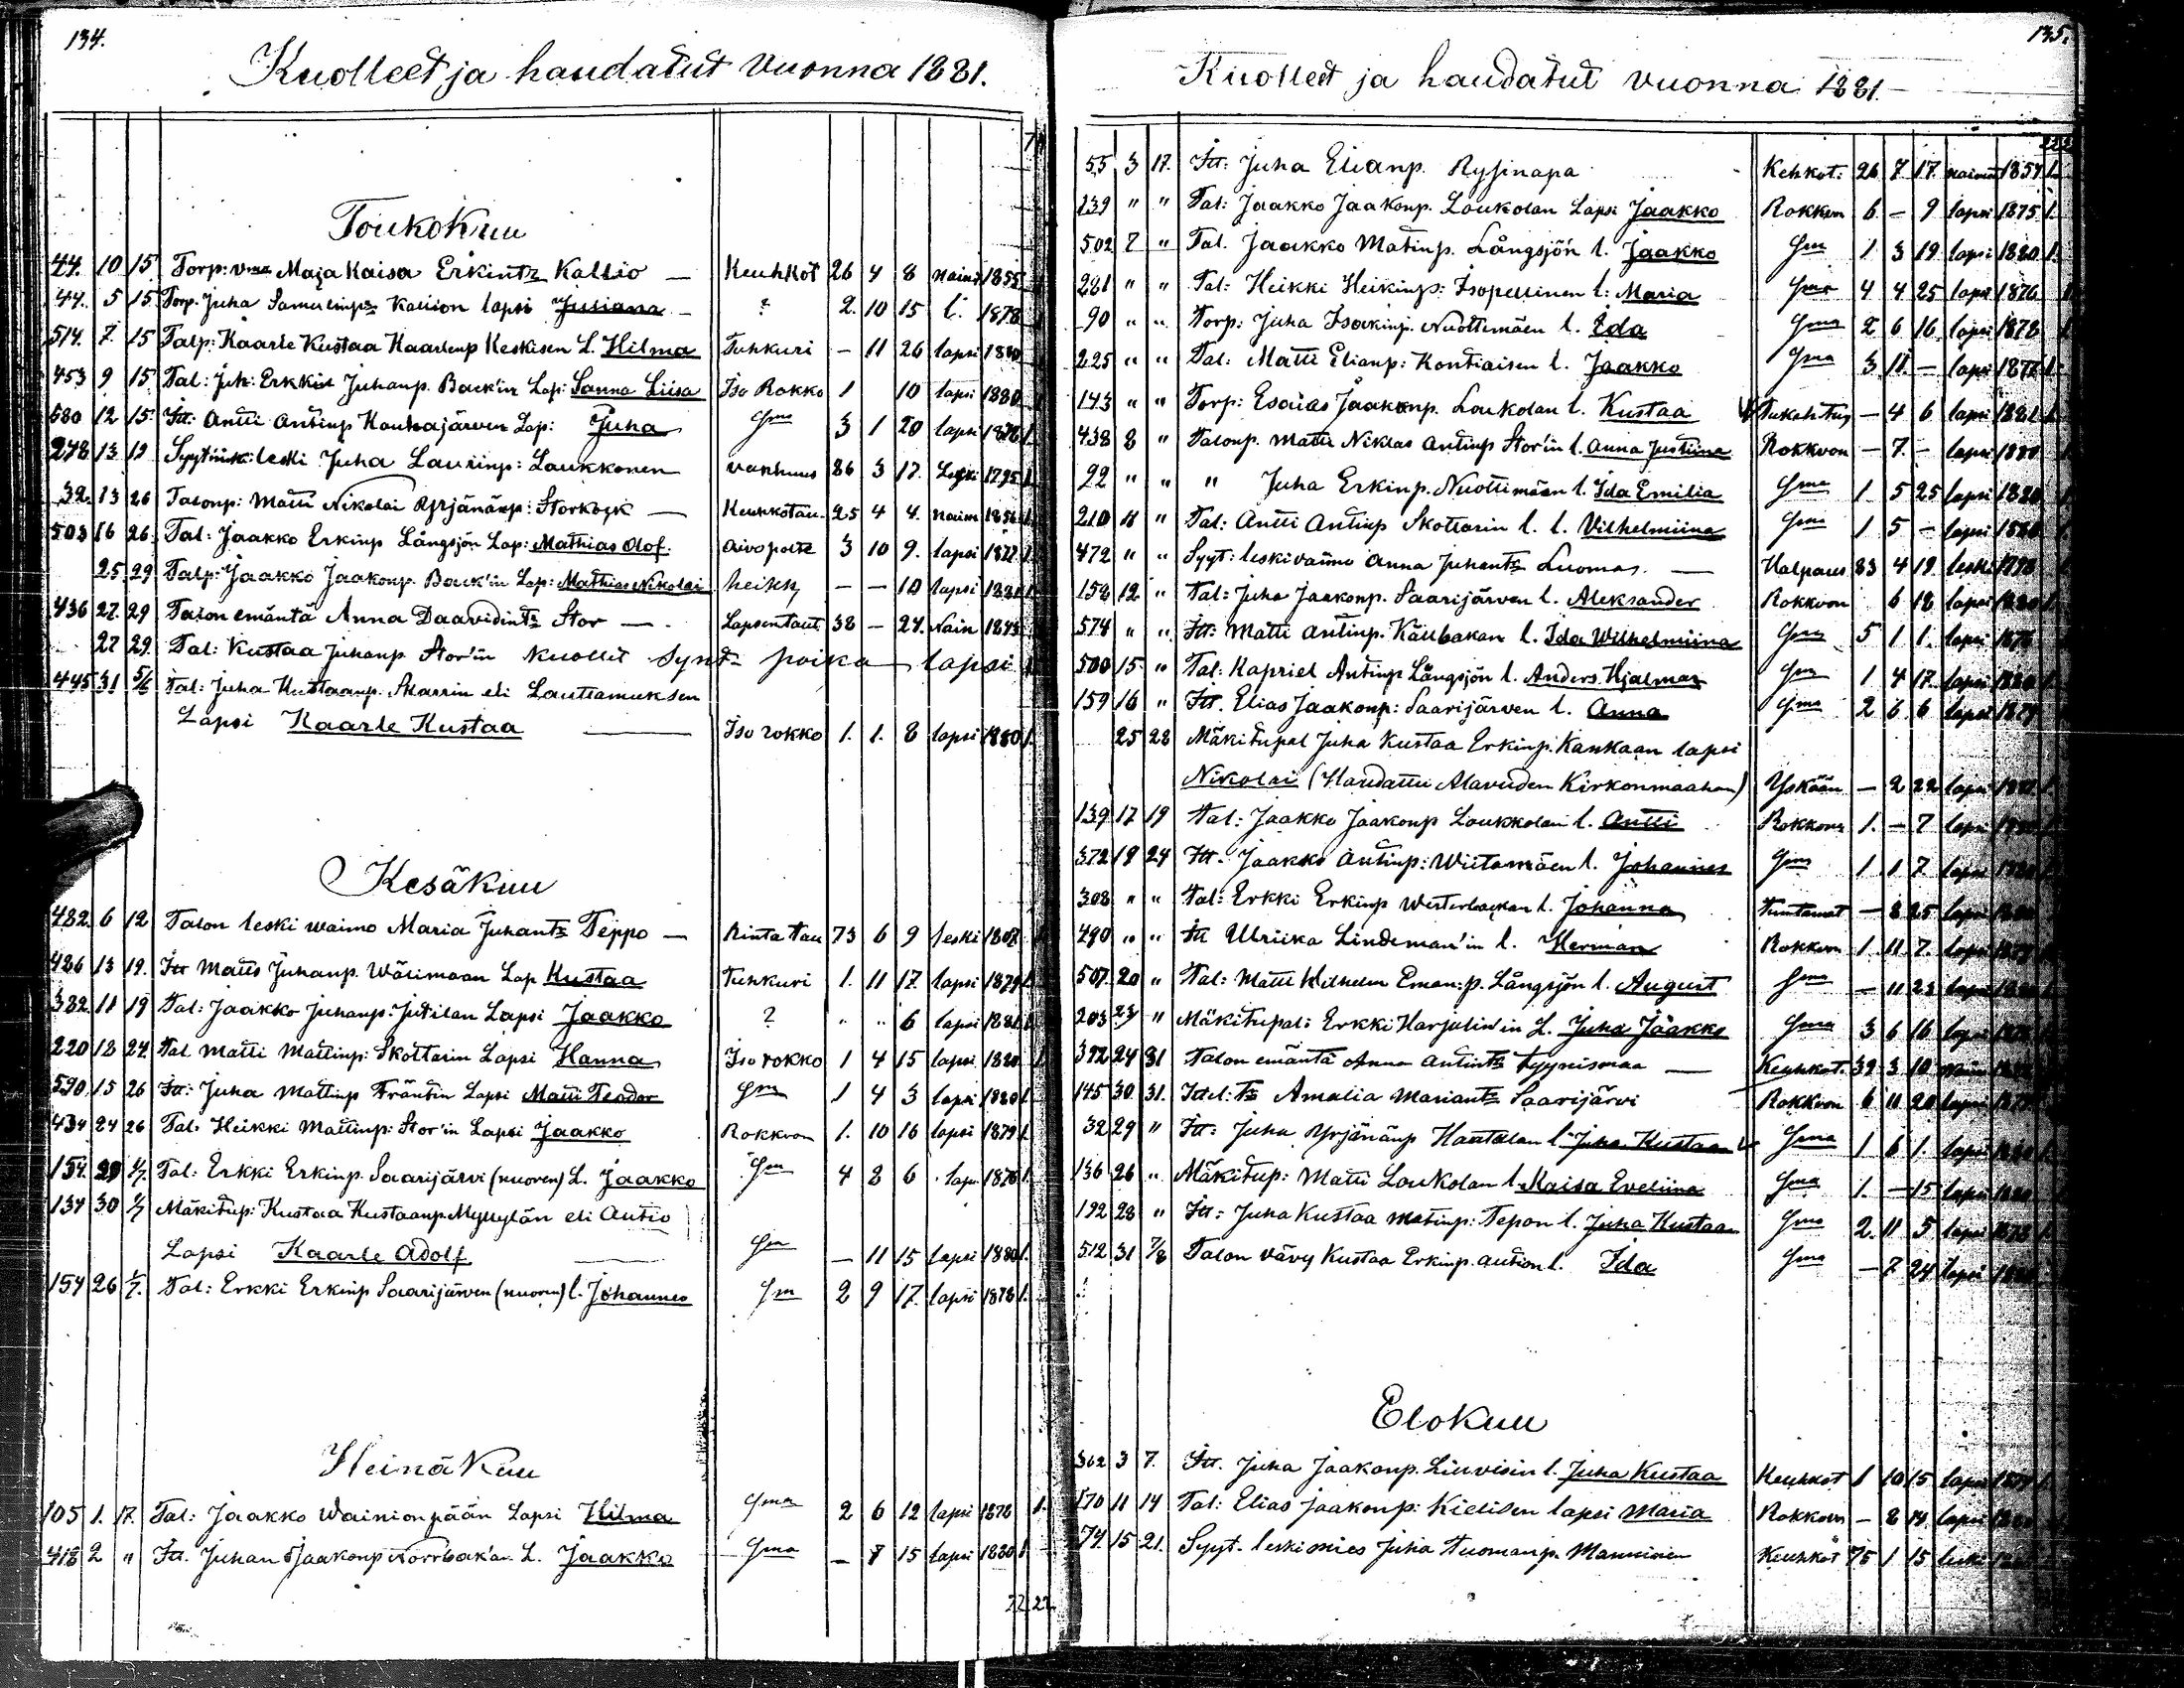 134.
Kuolleet ja haudatut vuonna 1881.
Toukokuu
44. 10 15 Torp: vmo Maja Kaisa Erkintr Kallio — Keuhkot 26 4 8 nain 1855
44. 5 15 Torp. Juha Samulinp Kallion lapsi Jusiana — ? 2. 10 15 l. 1878
514. 7. 15 Talp: Kaarle Kustaa Kaarlenp Keskisen L. Hilma Tuhkuri — 11 26 lapsi 1880
453 9 15 Tal: Juh: Erkki Juhanp. Back'in Lap: Sanna Liisa Iso Rokko 1 10 lapsi 1880
580 12 15 Itt: Antti Antinp Kauhajärven Lap: Juha Sma 3 1 20 lapsi 1878 1.
278 13 19 Syytink: leski Juha Laurinp: Laukkonen vanhuus 86 3 17. Leski 1795 1.
32. 13 26 Talonp: Matti Nikolai Yrjänänp: Storbyk — Keuhkotau. 25 4 4. naim 1856 1.
503 16 26. Tal: Jaakko Erkinp Långsjön Lap: Mathias Olof. Aivopolte 3 10 9. lapsi 1877 1.
25 29 Talp: Jaakko Jaakonp. Back'in Lap: Mathias Nikolai heikk — — 10 lapsi 1881 1.
436 27. 29 Talon emäntä Anna Daavidintr Stor — Lapsentaut 38 — 24. Nain 1843
27 29. Tal: Kustaa Juhanp Stor'in kuollut synt- poika — lapsi
445 31 5/6 Tal: Juha Kustaanp. Skarrin eli Lauttamuksen
Lapsi Kaarle Kustaa — Iso rokko 1. 1. 8 lapsi 1880 1.
Kesäkuu
482. 6 12 Talon leski waimo Maria Juhantr Teppo — Rinta tau 73 6 9 leski 1807
486 13 19. Itt Matts Juhanp. Wälimaan Lap Kustaa Tuhkuri 1. 11 17. lapsi 1879 1.
382. 11 19 Tal: Jaakko Juhanp: Jutilan Lapsi Jaakko ? „ „ 6 lapsi 1881 1.
220 18 24. Tal Matti Mattinp: Skottarin Lapsi Hanna Iso rokko 1 4 15 lapsi 1880 1.
590. 15 26 Itt: Juha Mattinp Fräntin Lapsi Matti Teodor Sma 1 4 3 lapsi 1880 1.
434 24 26 Tal: Heikki Mattinp: Stor'in Lapsi Jaakko Rokkoon 1. 10 16 lapsi 1879 1.
154. 29 1/7. Tal: Erkki Erkinp. Saarijärvi (nuoren) L. Jaakko Sma 4 8 6 lapsi 1876 1.
134 30 1/7 Mäkitup: Kustaa Kustaanp. Myllylän eli Autio
Lapsi Kaarle Adolf — Sma — 11 15 lapsi 1880 1.
154 26 1/7. Tal: Erkki Erkinp Saarijärven (nuoren) l. Johannes Sma 2 9 17. lapsi 1878 1.
Heinäkuu
105 1. 17. Tal: Jaakko Wainionpään Lapsi Hilma Sma 2 6 12 lapsi 1878 1.
418 2 „ Itt. Juhan Jaakonp Norrbak'an L. Jaakko Sma — 8 15 lapsi 1880 1.
22 22
135.
Kuolleet ja haudatut vuonna 1881.
55 3 17. Itt: Juha Elianp. Rysinapa Kehkot. 26 7 17. nainut 1854 1.
139 „ „ Tal: Jaakko Jaakonp. Loukolan Lapsi Jaakko Rokkon 6 — 9 lapsi 1875 1.
502 7 „ Tal. Jaakko Matinp. Långsjön l. Jaakko Sma 1 3 19 lapsi 1880 1.
281 „ „ Tal: Heikki Heikinp: Isopellinen l: Maria Sma 4 4 25 lapsi 1876
90 „ „ Torp: Juha Isakinp. Nuottimäen l. Eda Sma 2 6 16 lapsi 1878
225 „ „ Tal: Matti Elianp: Kontiaisen l. Jaakko Sma 3 11. — lapsi 1877 1.
143 „ „ Torp: Esaias Jaakonp. Loukolan l. Kustaa Tukehtuy — 4 6 lapsi 1881 1.
438 8 „ Talonp. Matti Niklas Antinp Stor'in l. Anna Justiina Rokkoon — 7. — lapsi 1880
22 „ „ „ Juha Erkinp. Nuottimäen l. Ida Emilia Sma 1. 5 25 lapsi 1880
210 11 „ Tal: Antti Antinp Skottarin l. l. Vilhelmiina Sma 1 5 — lapsi 1880
472 „ „ Syyt: leskivaimo Anna Juhantr Luomas. — Halpaus 83 4 19 leski 1798
158 12 „ Tal: Juha Jaakonp. Saarijärven l. Aleksander Rokkoon 6 18 lapsi 1880 1.
574 „ „ Itt: Matti Antinp. Käubakan l. Ida Wilhelmiina Sma 5 1 1. lapsi 1876
500 15 „ Tal: Kapriel Antinp Långsjön l. Anders Hjalmar Sma 1 4 17. lapsi 1880 1.
159 16 „ Itt. Elias Jaakonp: Saarijärven l. Anna Sma 2 6 6 lapsi 1879
25 28 Mäkitupal Juha Kustaa Erkinp. Kankaan lapsi
Nikolai (Haudattu Alavuden Kirkonmaahan) Yskään — 2 22 lapsi 1881 1.
139 17 19 Tal: Jaakko Jaakonp Loukkolan l. Antti Rokkoon 1. — 7 lapsi 1880
372 19 24 Itt. Jaakko Antinp: Wiitamäen l. Johannes Sma 1 1 7 lapsi 1880
308 „ „ Tal: Erkki Erkinp Westerbackan l. Johanna Tuntamat — 8 25 lapsi 1880
490 „ „ Itt Ulriika Lindeman'in l. Herman Rokkoon 1. 11. 7. lapsi 1879
507 20 „ Tal: Matti Wilhelm Eman:p. Långsjön l. August Sma — 11 23 lapsi 1880
203 23 „ Mäkitupal: Erkki Harjulin'in L. Juha Jaakko Sma 3 6 16 lapsi
392 24 31 Talon emäntä Anna Antintr Tyynismaa — Keuhkot. 39 3 10
145 30 31. Ittel: tr Amalia Mariantr Saarijärvi Rokkoon 6 11 20 lapsi
32 29 „ Itt: Juha Yrjänänp Hantalan l. Juha Kustaa Sma 1 6 1. lapsi 1880
136 26 „ Mäkitup: Matti Loukolan l. Kaisa Eveliina Sma 1. — 15 lapsi 1880
192 28 „ Itt: Juha Kustaa Matinp: Tepon l. Juha Kustaa Sma 2. 11 5 lapsi 1878
512 31 7/8 Talon vävy Kustaa Erkinp. Aution l. Ida Sma — 7 24 lapsi
Elokuu
362 3 7. Itt. Juha Jaakonp. Liuvisin l. Juha Kustaa Keuhkot 1 10 15 lapsi 1879 1.
170 11 14 Tal: Elias Jaakonp: Kielisen lapsi Maria Rokkoon — 8 14. lapsi 1880
74. 15 21. Syyt. leskimies Juha Tuomanp. Manninen Keuhkot 75 1 15 leski